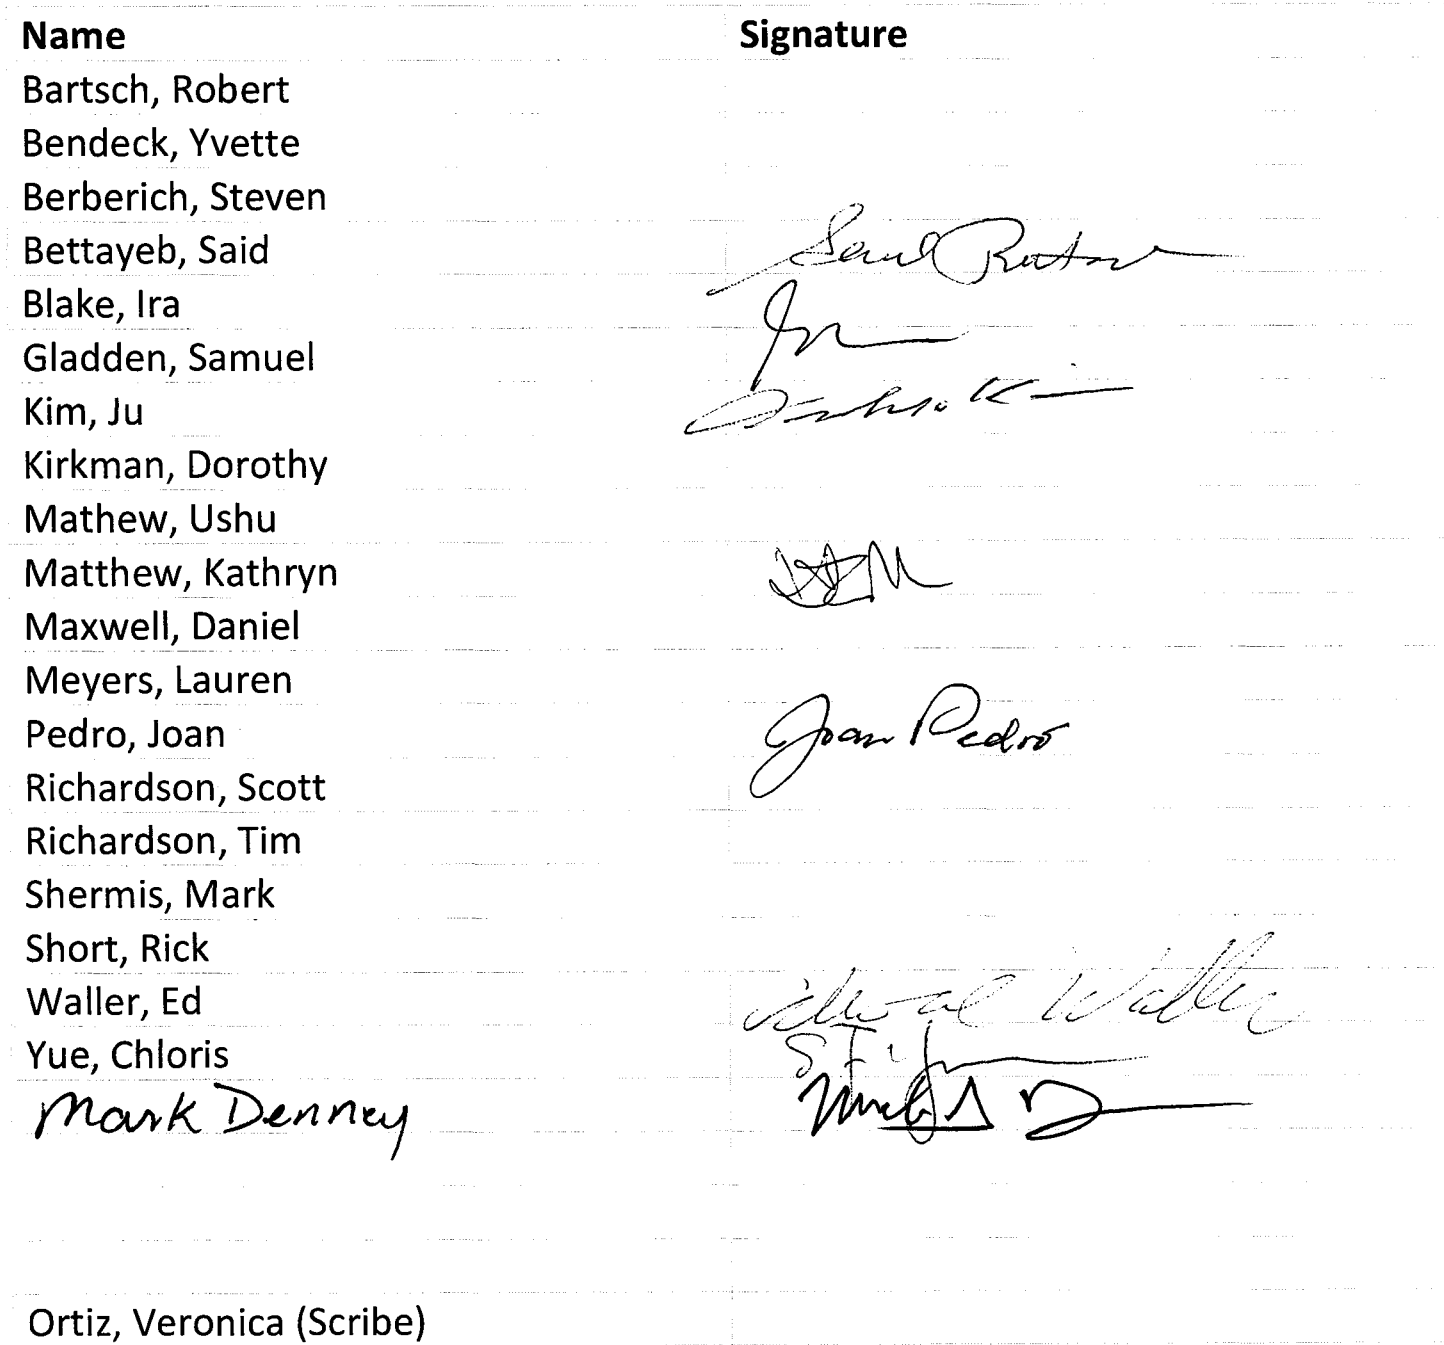 Name Signature
Bartsch, Robert
Bendeck, Yvette
Berberich, Steven
Bettayeb, Said
Blake, Ira
Gladden, Samuel
Kim, Ju
Kirkman, Dorothy
Mathew, Ushu
Matthew, Kathryn
Maxwell, Daniel
Meyers, Lauren
Pedro, Joan Joan Pedro
Richardson, Scott
Richardson, Tim
Shermis, Mark
Short, Rick
Waller, Ed Waller
Yue, Chloris
Mark Denney
Ortiz, Veronica (Scribe)